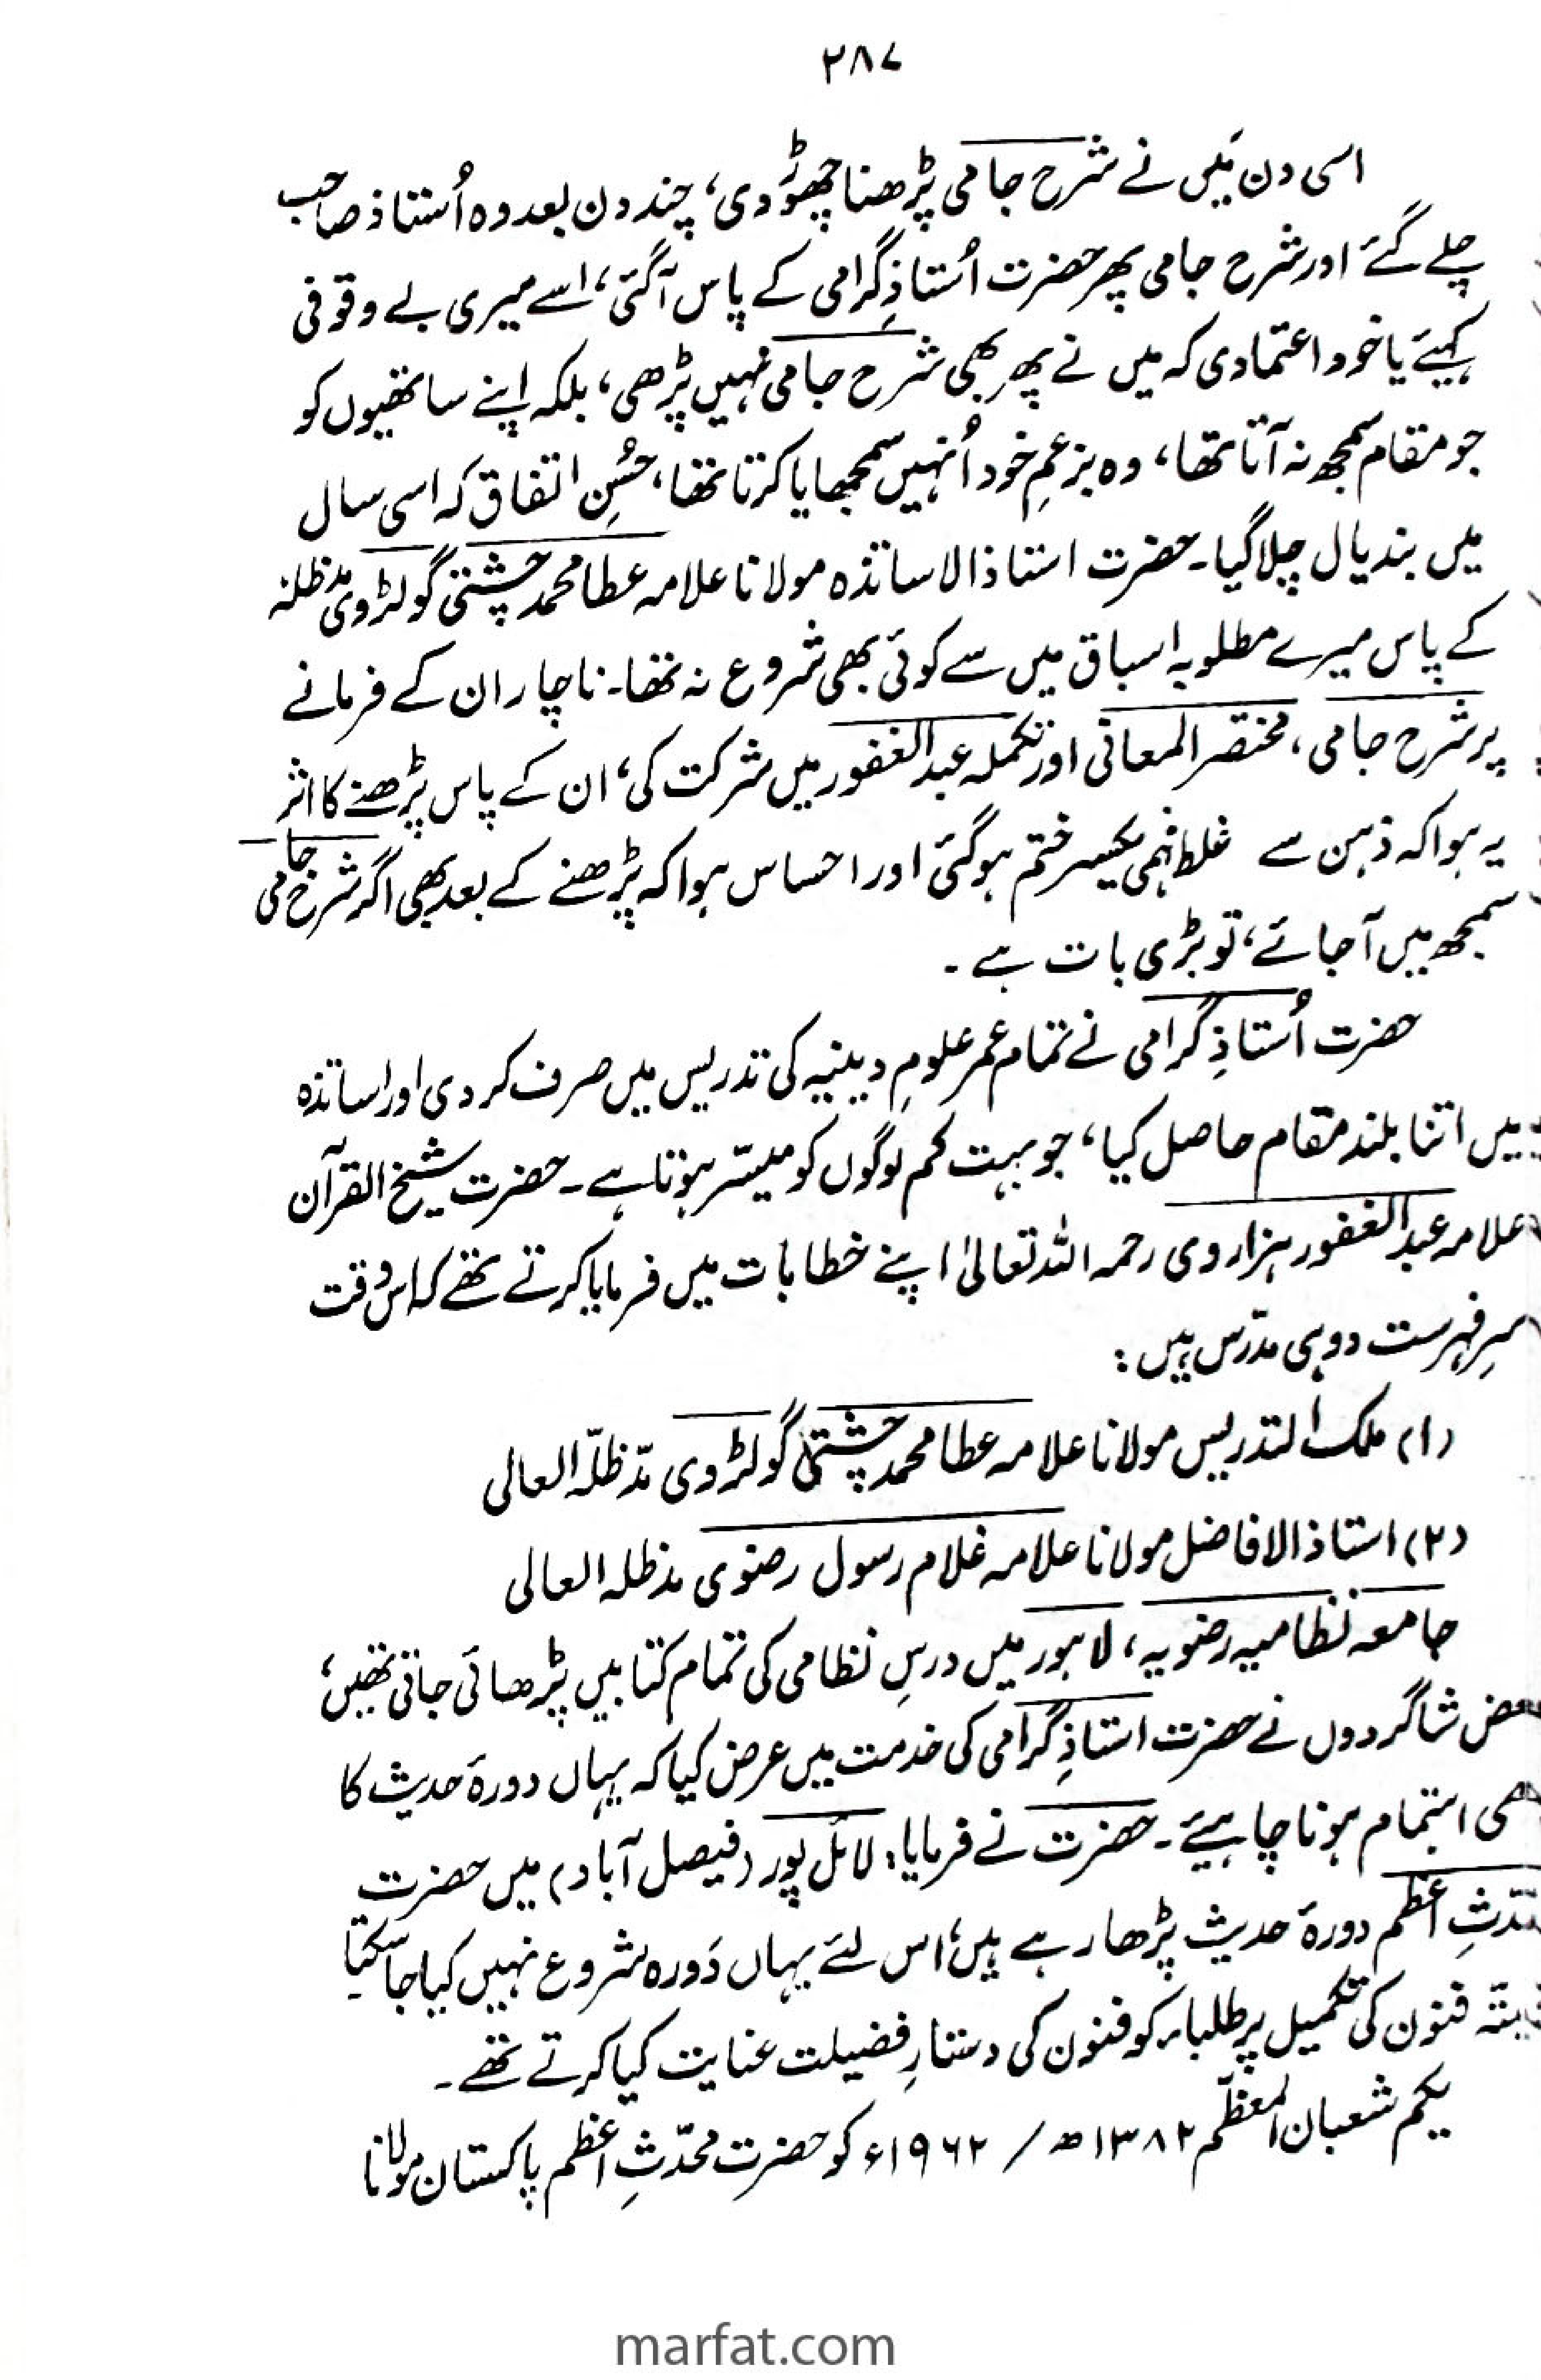 ۲۸۷
اسی دن مَیں نے شرح جامی پڑھنا چھوڑ دی، چند دن بعد وہ اُستاذ صاحب
چلے گئے اور شرح جامی پھر حضرت اُستاذِ گرامی کے پاس آگئی، اسے میری بے وقوفی
کہیئے یا خود اعتمادی کہ میں نے پھر بھی شرح جامی نہیں پڑھی، بلکہ اپنے ساتھیوں کو
جو مقام سمجھ نہ آتا تھا، وہ بزعمِ خود اُنہیں سمجھایا کرتا تھا، حُسنِ اتفاق کہ اسی سال
میں بندیال چلا گیا۔ حضرت استاذ الاساتذہ مولانا علامہ عطا محمد چشتی گولڑوی مدظلہٗ
کے پاس میرے مطلوبہ اسباق میں سے کوئی بھی شروع نہ تھا۔ ناچار ان کے فرمانے
پر شرح جامی، مختصر المعانی اور تکملہ عبد الغفور میں شرکت کی، ان کے پاس پڑھنے کا اثر
یہ ہوا کہ ذہن سے غلط فہمی یکسر ختم ہوگئی اور احساس ہوا کہ پڑھنے کے بعد بھی اگر شرح جامی
سمجھ میں آ جائے، تو بڑی بات ہے۔
حضرت اُستاذِ گرامی نے تمام عمر علومِ دینیہ کی تدریس میں صرف کر دی اور اساتذہ
میں اتنا بلند مقام حاصل کیا، جو بہت کم لوگوں کو میسّر ہوتا ہے۔ حضرت شیخ القرآن
علامہ عبد الغفور ہزاروی رحمہ اللہ تعالیٰ اپنے خطابات میں فرمایا کرتے تھے کہ اس وقت
سرِ فہرست دو ہی مدرّس ہیں:
(۱) ملک التدریس مولانا علامہ عطا محمد چشتی گولڑوی مدّظلّہ العالی
(۲) استاذ الافاضل مولانا علامہ غلام رسول رضوی مدظلہ العالی
جامعہ نظامیہ رضویہ، لاہور میں درسِ نظامی کی تمام کتابیں پڑھائی جاتی تھیں،
بعض شاگردوں نے حضرت استاذِ گرامی کی خدمت میں عرض کیا کہ یہاں دورۂ حدیث کا
بھی اہتمام ہونا چاہیئے۔ حضرت نے فرمایا: لائل پور (فیصل آباد) میں حضرت
محدّثِ اعظم دورۂ حدیث پڑھا رہے ہیں، اس لئے یہاں دَورہ شروع نہیں کیا جا سکتا
البتّہ فنون کی تکمیل پر طلباء کو فنون کی دستارِ فضیلت عنایت کیا کرتے تھے۔
یکم شعبان المعظّم ۱۳۸۲ھ / ۱۹۶۲ء کو حضرت محدّثِ اعظم پاکستان مولانا
marfat.com